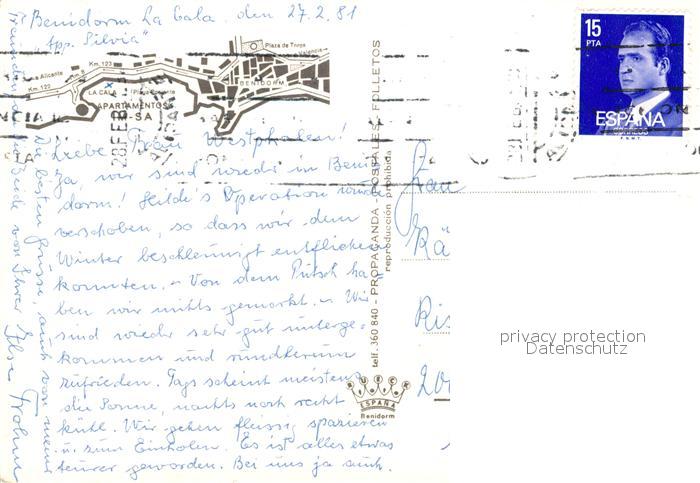 Benidorm La Cala, den 27.2.81
"App. Silvia"
Plaza de Toros
Valencia
Km. 123
a Alicante
Km. 122
BENIDORM
LA CALA
APARTAMENTOS
28 FEB
Liebe Frau Westphalen!
Ja, wir sind wieder in Beni-
dorm! Hilde's Operation wurde
verschoben, so dass wir dem
Winter beschleunigt entfliehen
konnten. - Von dem Putsch ha-
ben wir nichts gemerkt. - Wir
sind wieder sehr gut unterge-
kommen und rundherum
zufrieden. Tags scheint meistens
die Sonne, nachts noch recht
kühl. Wir gehen fleissig spazieren
u. zum Einholen. Es ist alles etwas
teurer geworden. Bei uns ja auch.
besten Grüsse, auch von meiner
Freundin, für Beide von Ihrer Ilse Frohm
telf. 360 840 - PROPAGANDA - POSTALES - FOLLETOS
reproducción prohibida
RUECK
ESPAÑA
Benidorm
15
PTA
ESPAÑA
CORREOS
F.N.M.T.
Frau
Kä
Ris
20
privacy protection
Datenschutz